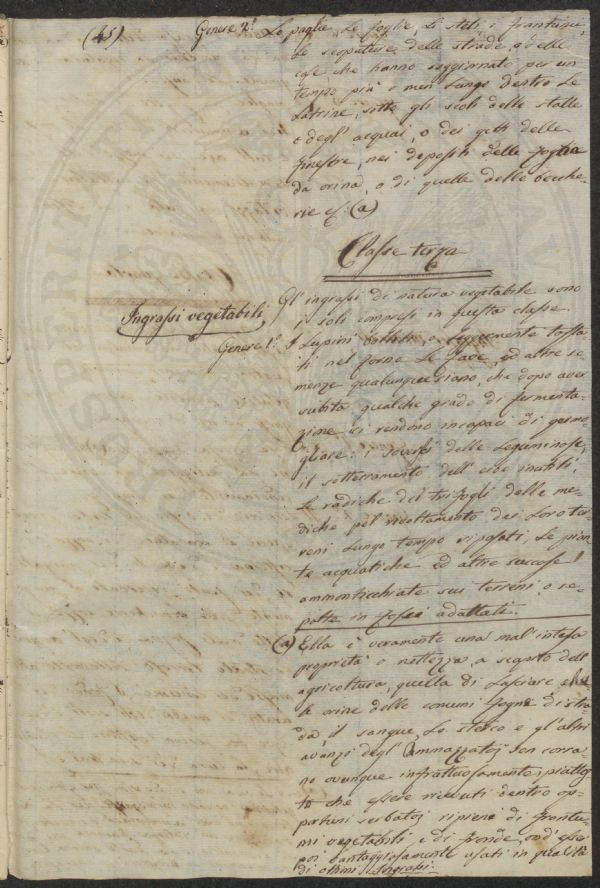 (45)
Genere 2.º Le paglie, Le foglie, Li steli, i frantumi,
Le scopature delle strade, o delle
case che hanno soggiornato per un
tempo più o men lungo dentro Le
Latrine, sotto gli scoli delle stalle
o degl' acquai, o dei getti delle
finestre, nei depositi delle fogne
da orina, o di quelle delle becche-
rie &. (a)
Classe terza
Ingrassi vegetabili
Gl' ingrassi di natura vegetabile sono
i soli compresi in questa classe.
Genere 1.º I Lupini bolliti, o leggermente tosta-
ti nel forno Le fave, ed altre se-
menze qualunque siano, che dopo aver
subita qualche grado di fermenta-
zione si rendono incapaci di germo-
gliare: i sovesci delle Leguminose,
il sotterramento dell' erbe inutili,
Le radiche dei trifogli delle me-
diche pel rivoltamento dei Loro ter-
reni Lungo tempo riposati, Le pian-
te acquatiche ed altre succose
ammonticchiate sui terreni o se-
polte in fosse adattate.
(a) Ella è veramente una mal' intesa
proprietà o nettezza, a scapito dell'
agricoltura, quella di Lasciare
le orine delle comuni fogne di stra-
da, il sangue, Lo sterco e gl' altri
avanzi degl' Ammazzatoj sen corra-
no ovunque infruttuosamente, piuttos-
to che essere ricevuti dentro op-
portuni serbatoj ripieni di frantu-
mi vegetabili e di fronde, ond' esser
poi vantaggiosamente usati in qualità
di ottimi Ingrassi.